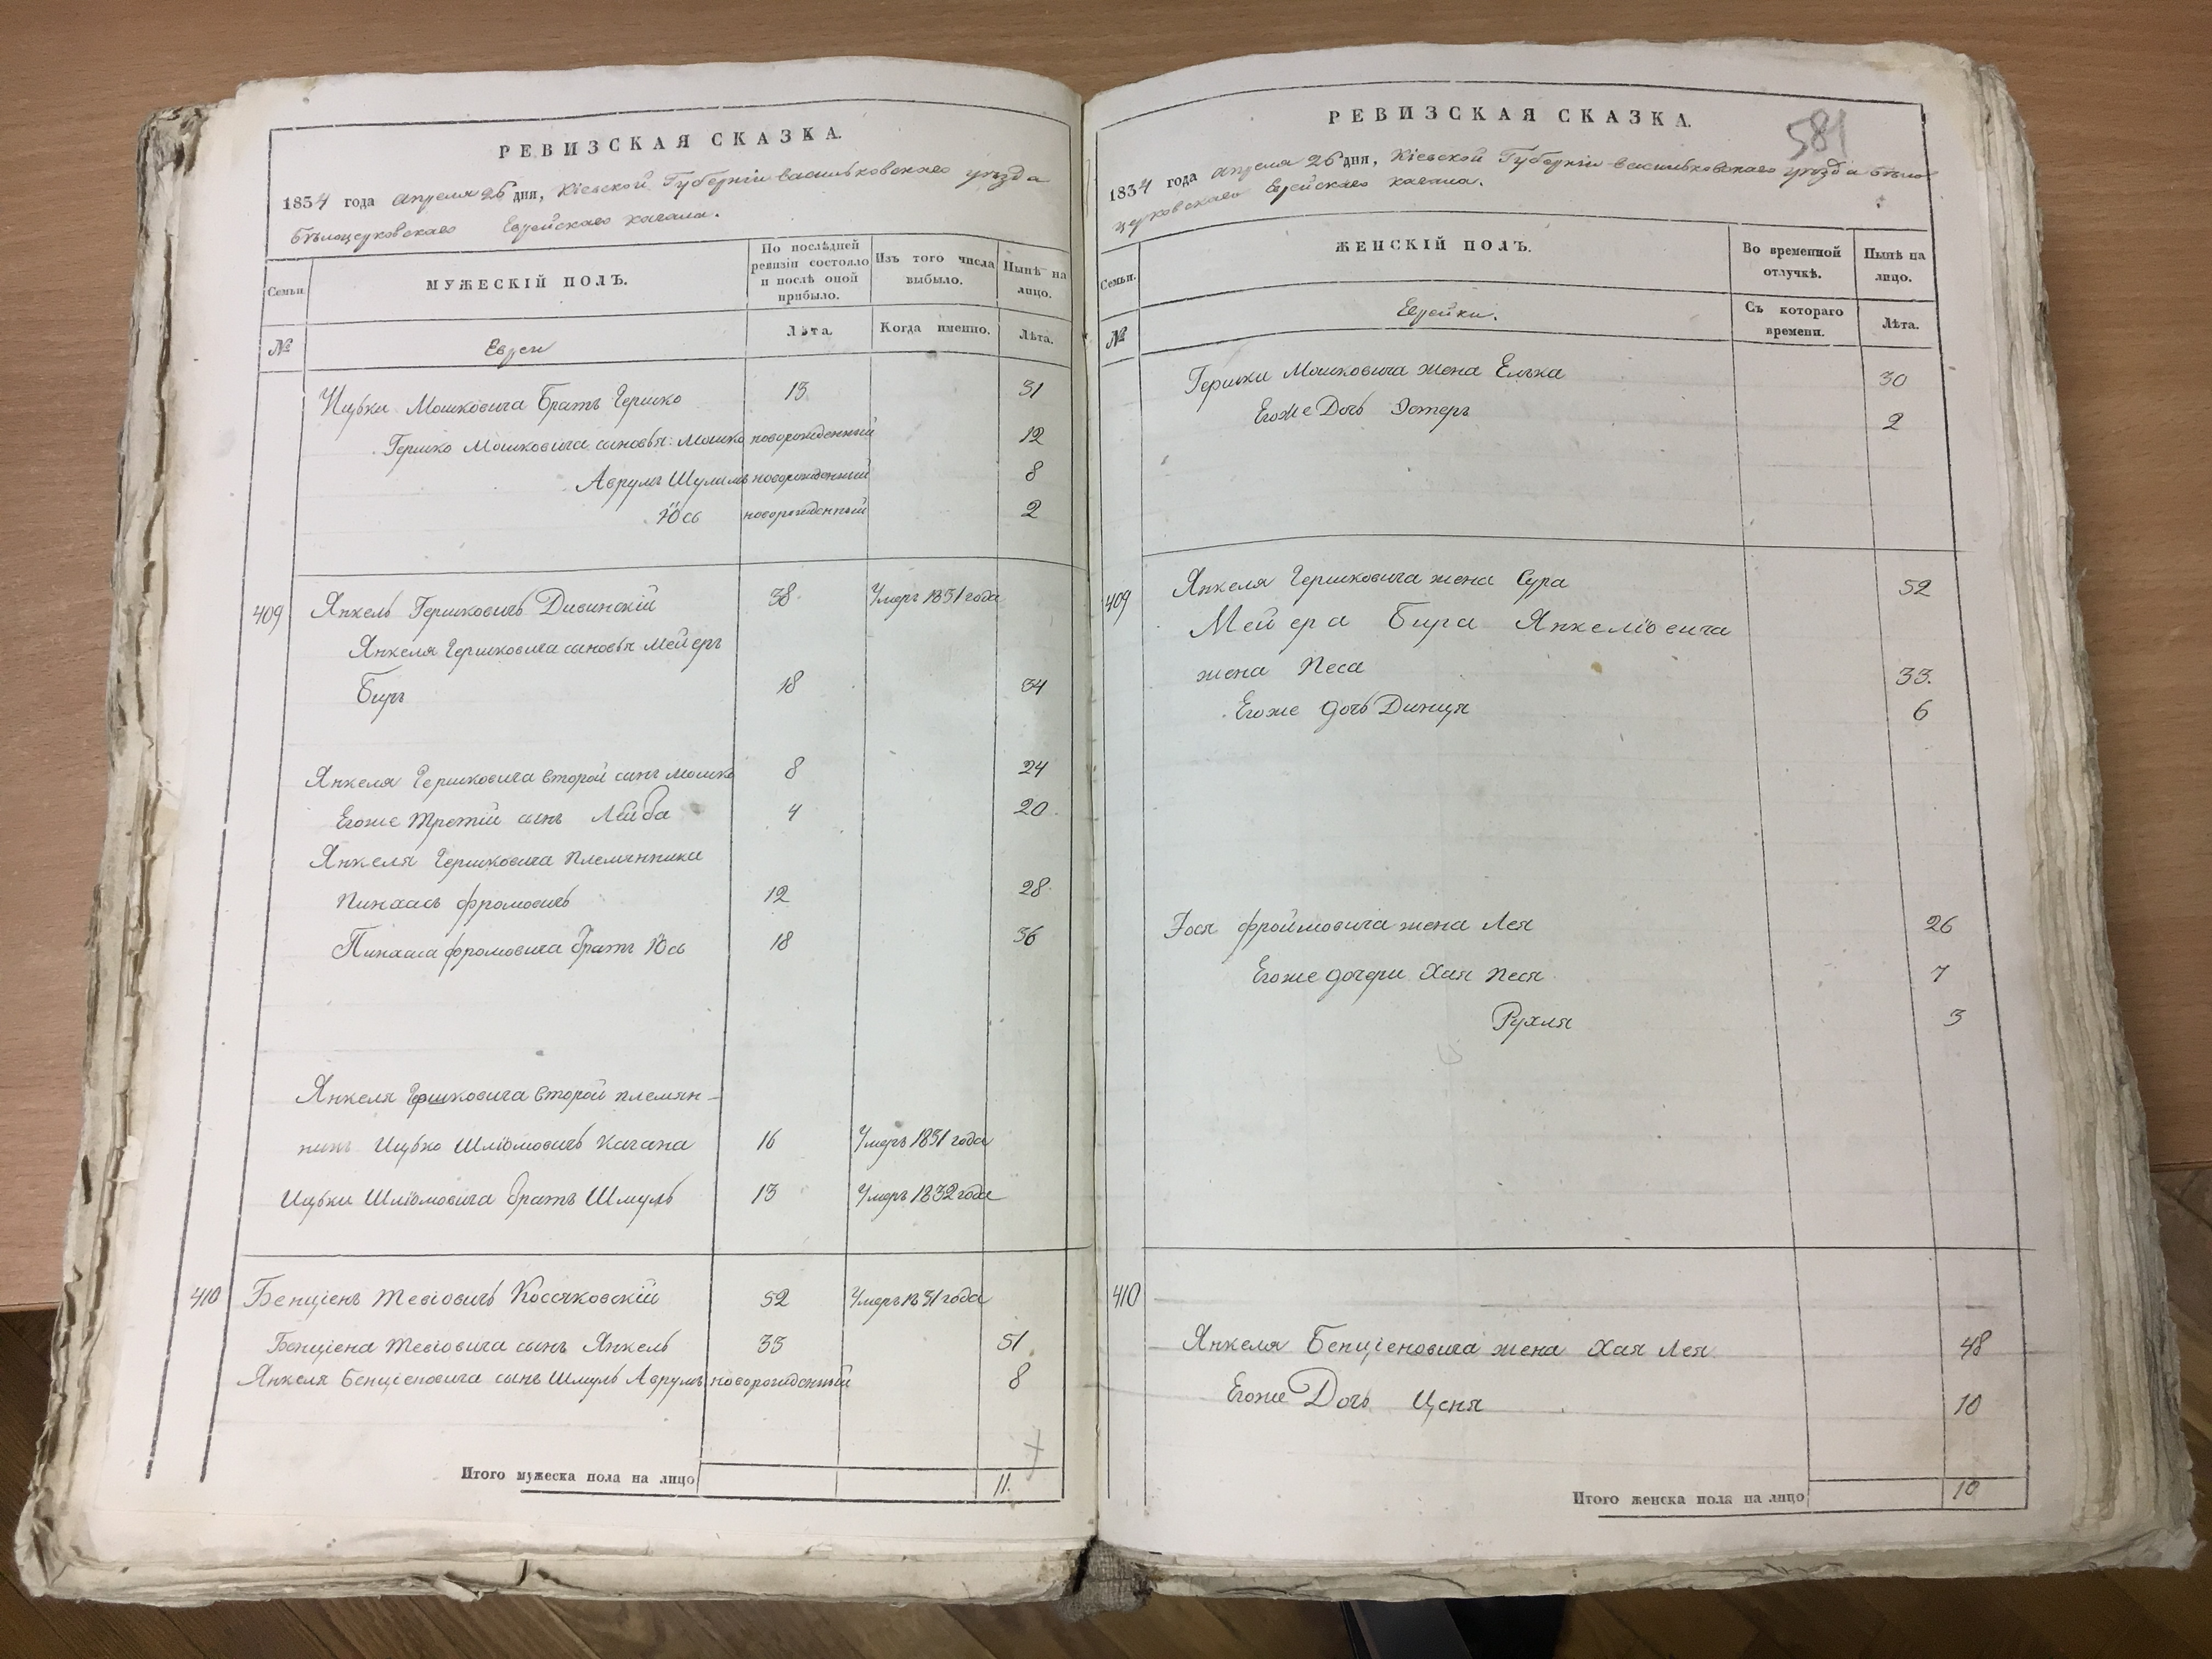 РЕВИЗСКАЯ СКАЗКА.
1834 года Апреля 26 дня, Кіевской Губерніи васильковскаго уезда
бѣлоцерковскаго Еврейскаго кагала.
Семьи.
МУЖЕСКІЙ ПОЛЪ.
По послѣдней ревизіи состояло и послѣ оной прибыло.
Изъ того числа выбыло.
Нынѣ на лицо.
№
Евреи
Лѣта.
Когда именно.
Лѣта.
Ицьки Мошковича братъ Гершко 13 31
Гершко Мошковича сыновья: Мошко новорожденный 12
Аврумъ Шулимъ новорожденный 8
Юсь новорожденный 2
409 Янкель Гершковичъ Дивинскій 38 Умеръ 1831 года
Янкеля Гершковича сыновья Мейеръ
Биръ 18 34
Янкеля Гершковича второй сынъ Мошко 8 24
Егоже третій сынъ Лейба 4 20
Янкеля Гершковича племянники
Пинхасъ фромовичъ 12 28
Пинхаса фромовича братъ Юсь 18 36
Янкеля Гершковича второй племян-
никъ Ицько Шліомовичъ Кагана 16 Умеръ 1831 года
Ицьки Шліомовича братъ Шмуль 13 Умеръ 1832 года
410 Бенціенъ Тевіовичъ Коссяковскій 52 Умеръ 1831 года
Бенціена Тевіовича сынъ Янкель 35 51
Янкеля Бенціеновича сынъ Шмуль Аврумъ новорожденный 8
Итого мужеска пола на лицо 11.
РЕВИЗСКАЯ СКАЗКА.
581
1834 года апреля 26 дня, Кіевской Губерніи васильковскаго уезда бѣло
церковскаго Еврейскаго кагала.
Семьи.
ЖЕНСКІЙ ПОЛЪ.
Во временной отлучкѣ.
Нынѣ на лицо.
№
Еврейки.
Съ котораго времени.
Лѣта.
Гершки Мошковича жена Елька 30
Егоже Дочь Эстеръ 2
409 Янкеля Гершковича жена Сура 52
Мейера Бира Янкеліовича
жена Песа 33.
Егоже дочь Динця 6
Іося фроймовича жена Лея 26
Егоже дочери Хая Песя 7
Рухля 3
410
Янкеля Бенціеновича жена Хая Лея 48
Егоже Дочь Ценя 10
Итого женска пола на лицо 10